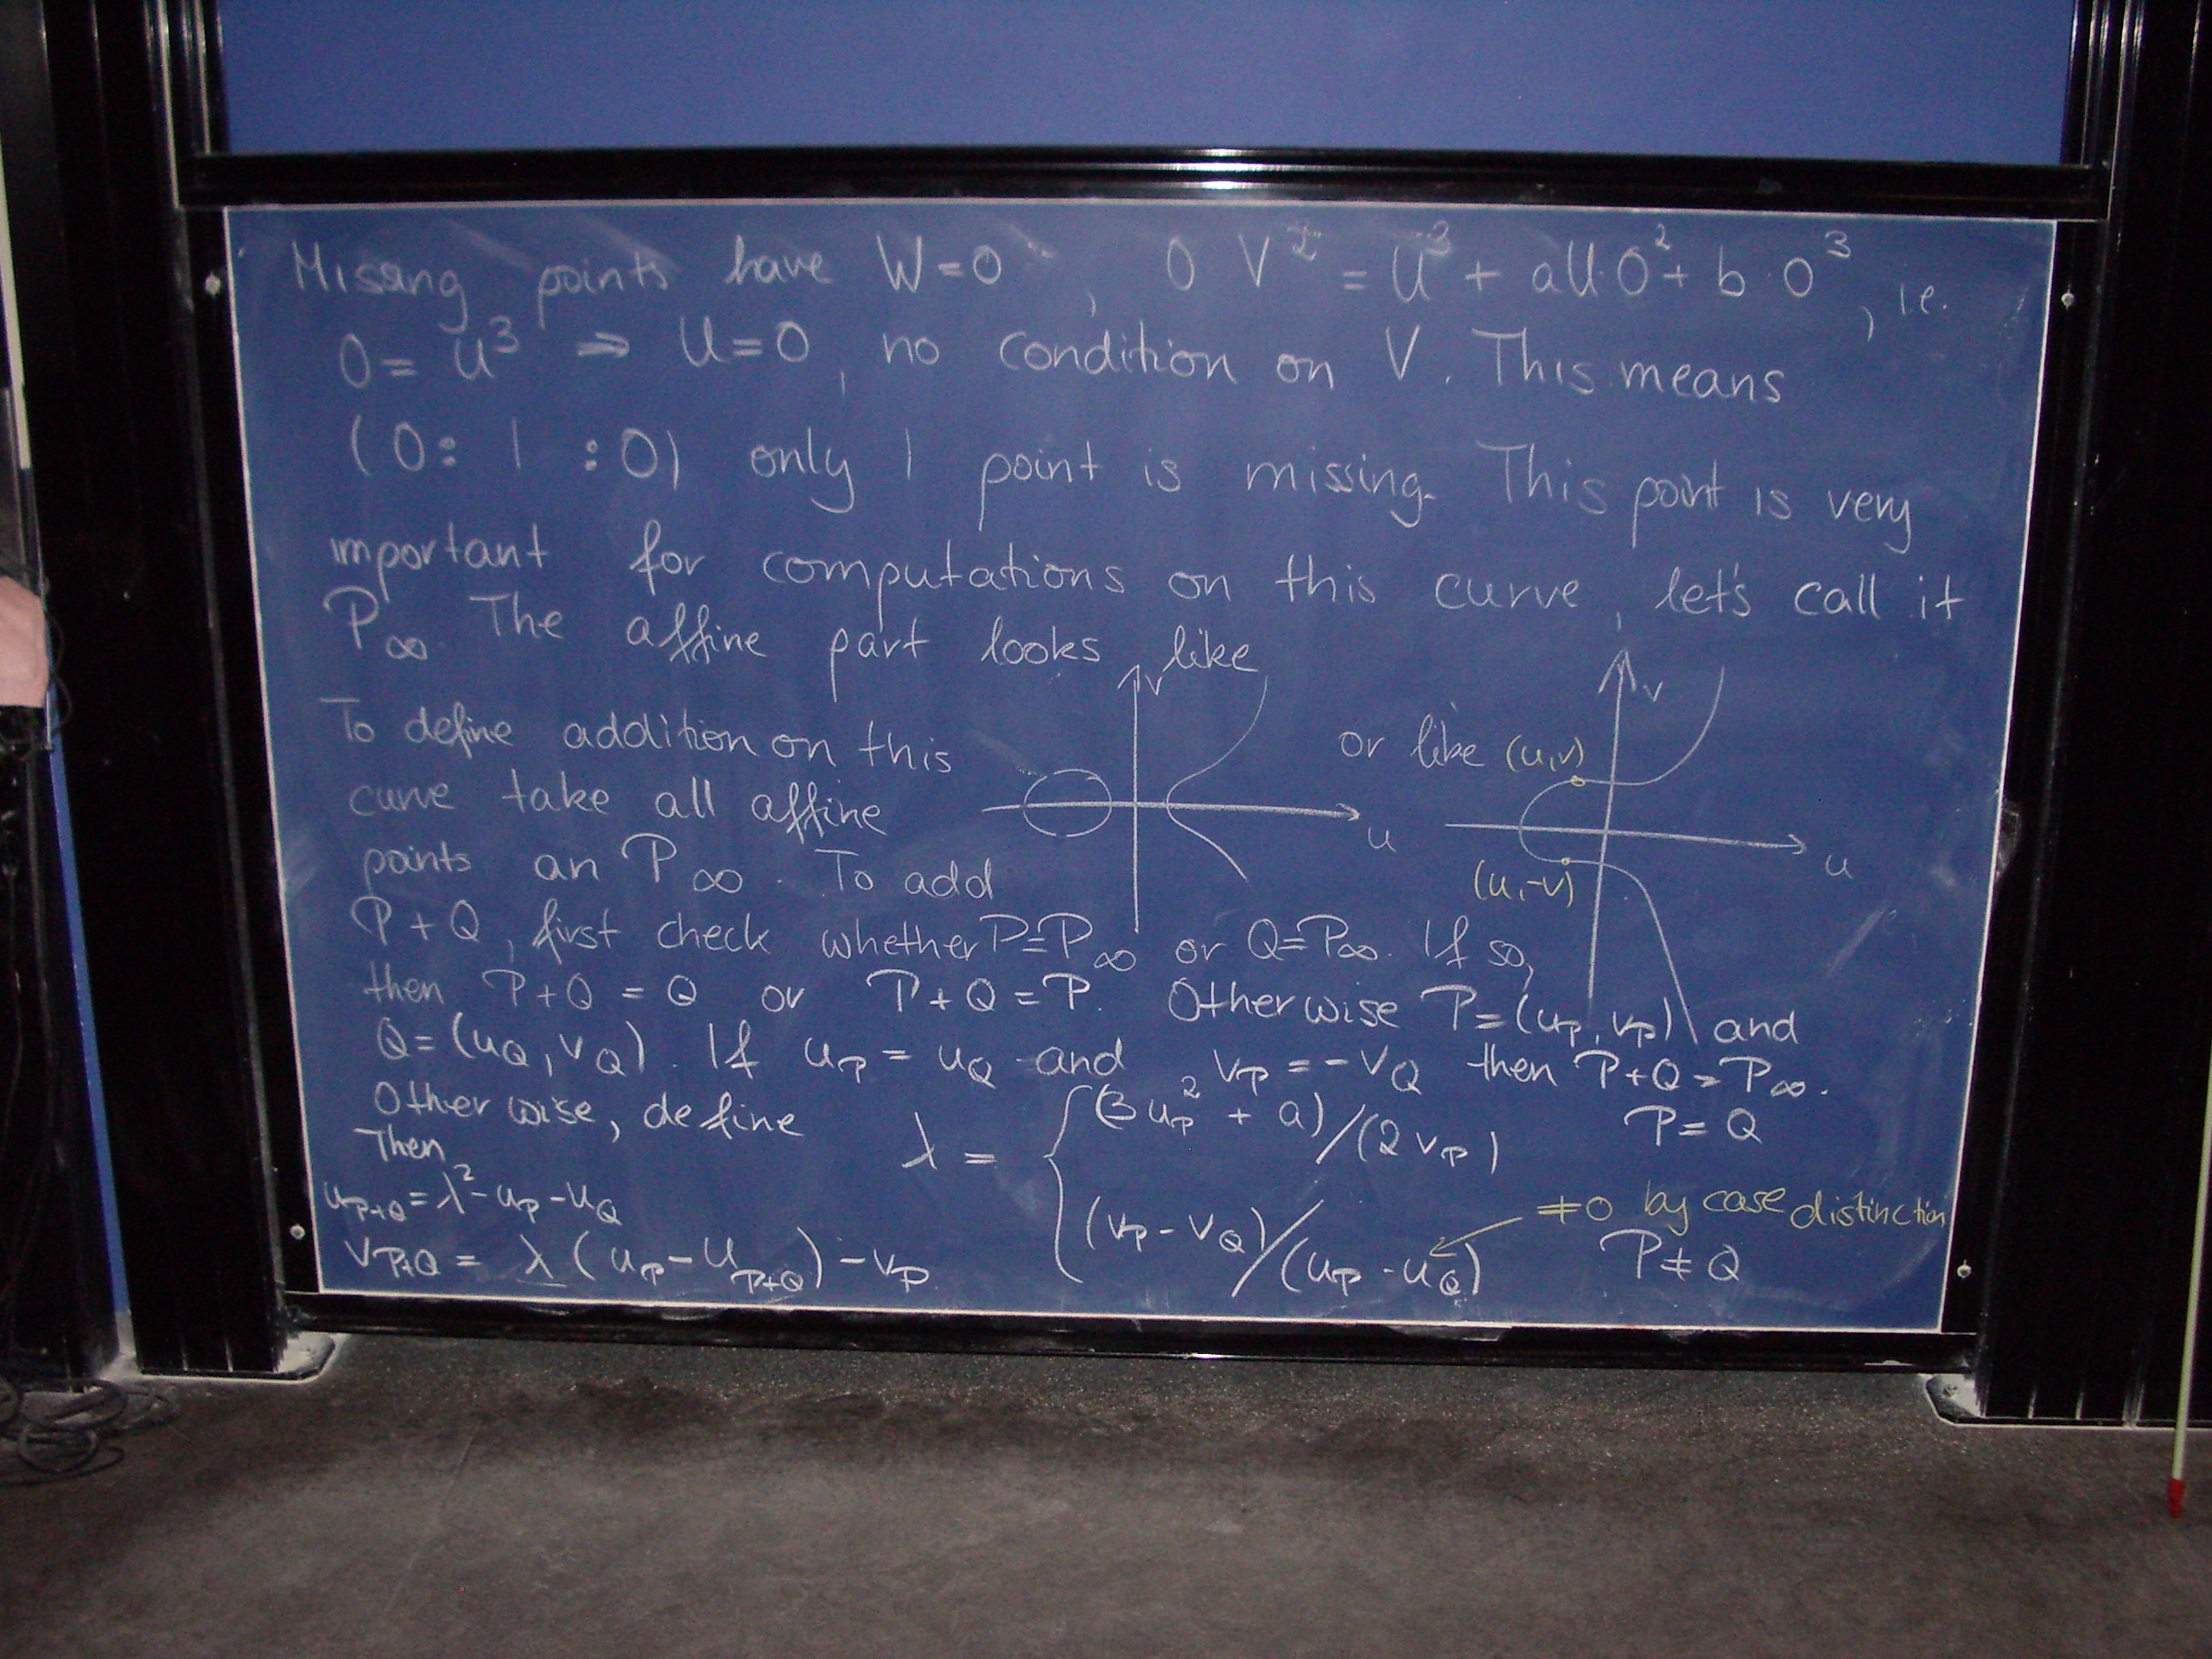 Missing points have W=0, 0 V² = U³ + aU·0² + b·0³, i.e.
0 = U³ ⇒ U=0, no condition on V. This means
(0: 1 :0) only 1 point is missing. This point is very
important for computations on this curve, let's call it
P∞. The affine part looks like
v
u
or like (u,v)
v
u
(u,-v)
To define addition on this
curve take all affine
points an P∞. To add
P+Q, first check whether P=P∞ or Q=P∞. If so,
then P+Q = Q or P+Q = P. Otherwise P=(u_P, v_P) and
Q=(u_Q, v_Q). If u_P = u_Q and v_P = -v_Q then P+Q = P∞.
Otherwise, define λ = { (3u_P² + a)/(2v_P) P=Q
(v_P - v_Q)/(u_P - u_Q) P≠Q
≠0 by case distinction
Then
u_{P+Q} = λ² - u_P - u_Q
v_{P+Q} = λ(u_P - u_{P+Q}) - v_P